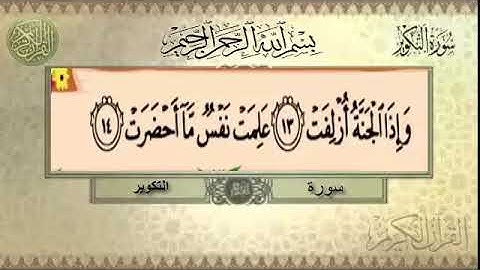 القرآن الكريم
بِسْمِ اللَّهِ الرَّحْمَٰنِ الرَّحِيمِ
سُورَةُ التَّكْوِيرِ
وَإِذَا ٱلْجَنَّةُ أُزْلِفَتْ ١٣ عَلِمَتْ نَفْسٌ مَّآ أَحْضَرَتْ ١٤
سورة
التكوير
القرآن الكريم